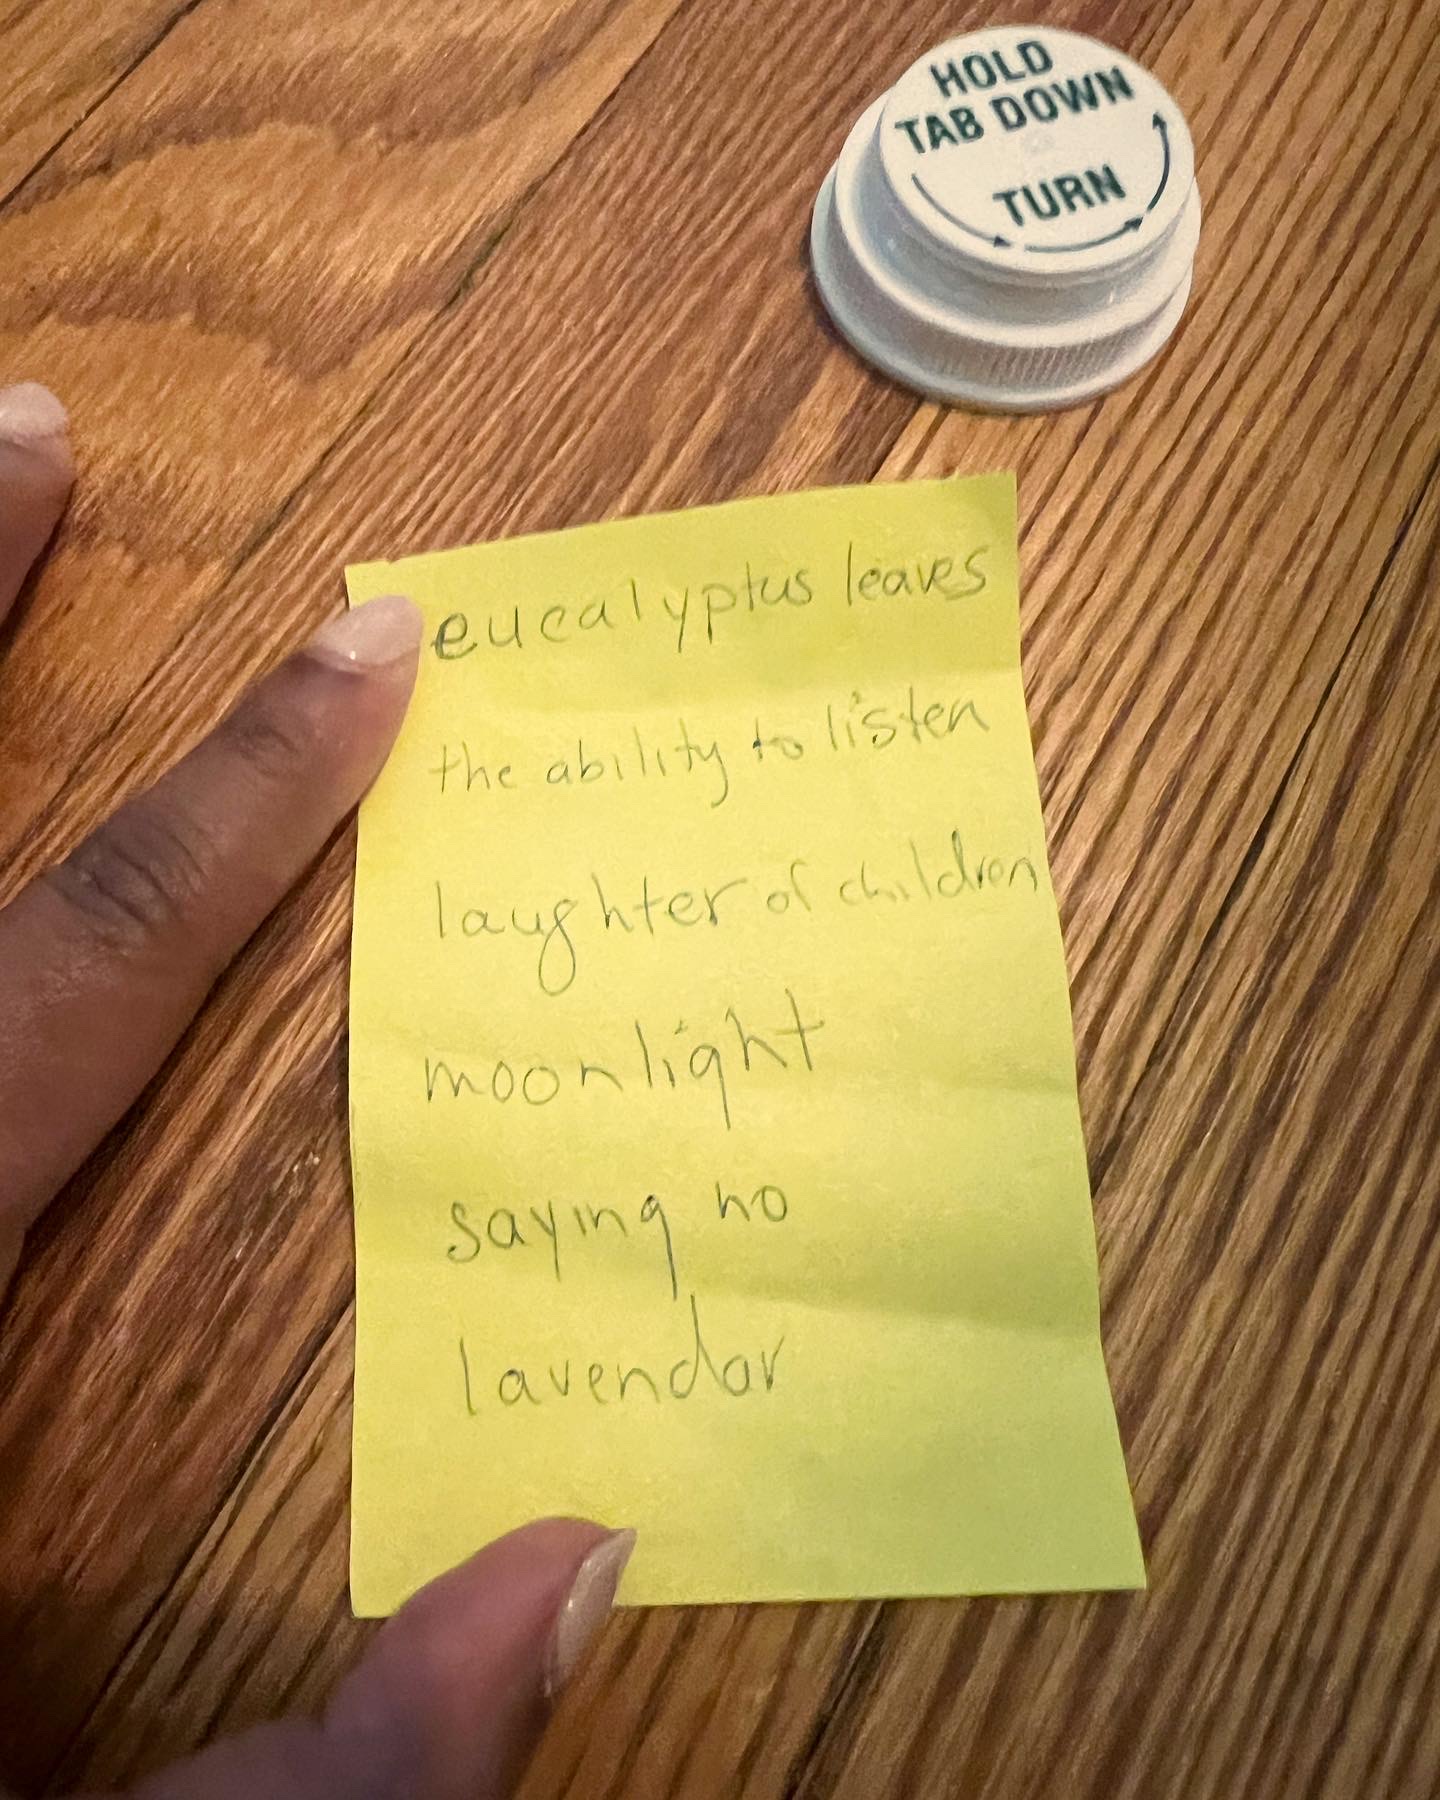 HOLD
TAB DOWN
TURN
eucalyptus leaves
the ability to listen
laughter of children
moonlight
saying no
lavendar